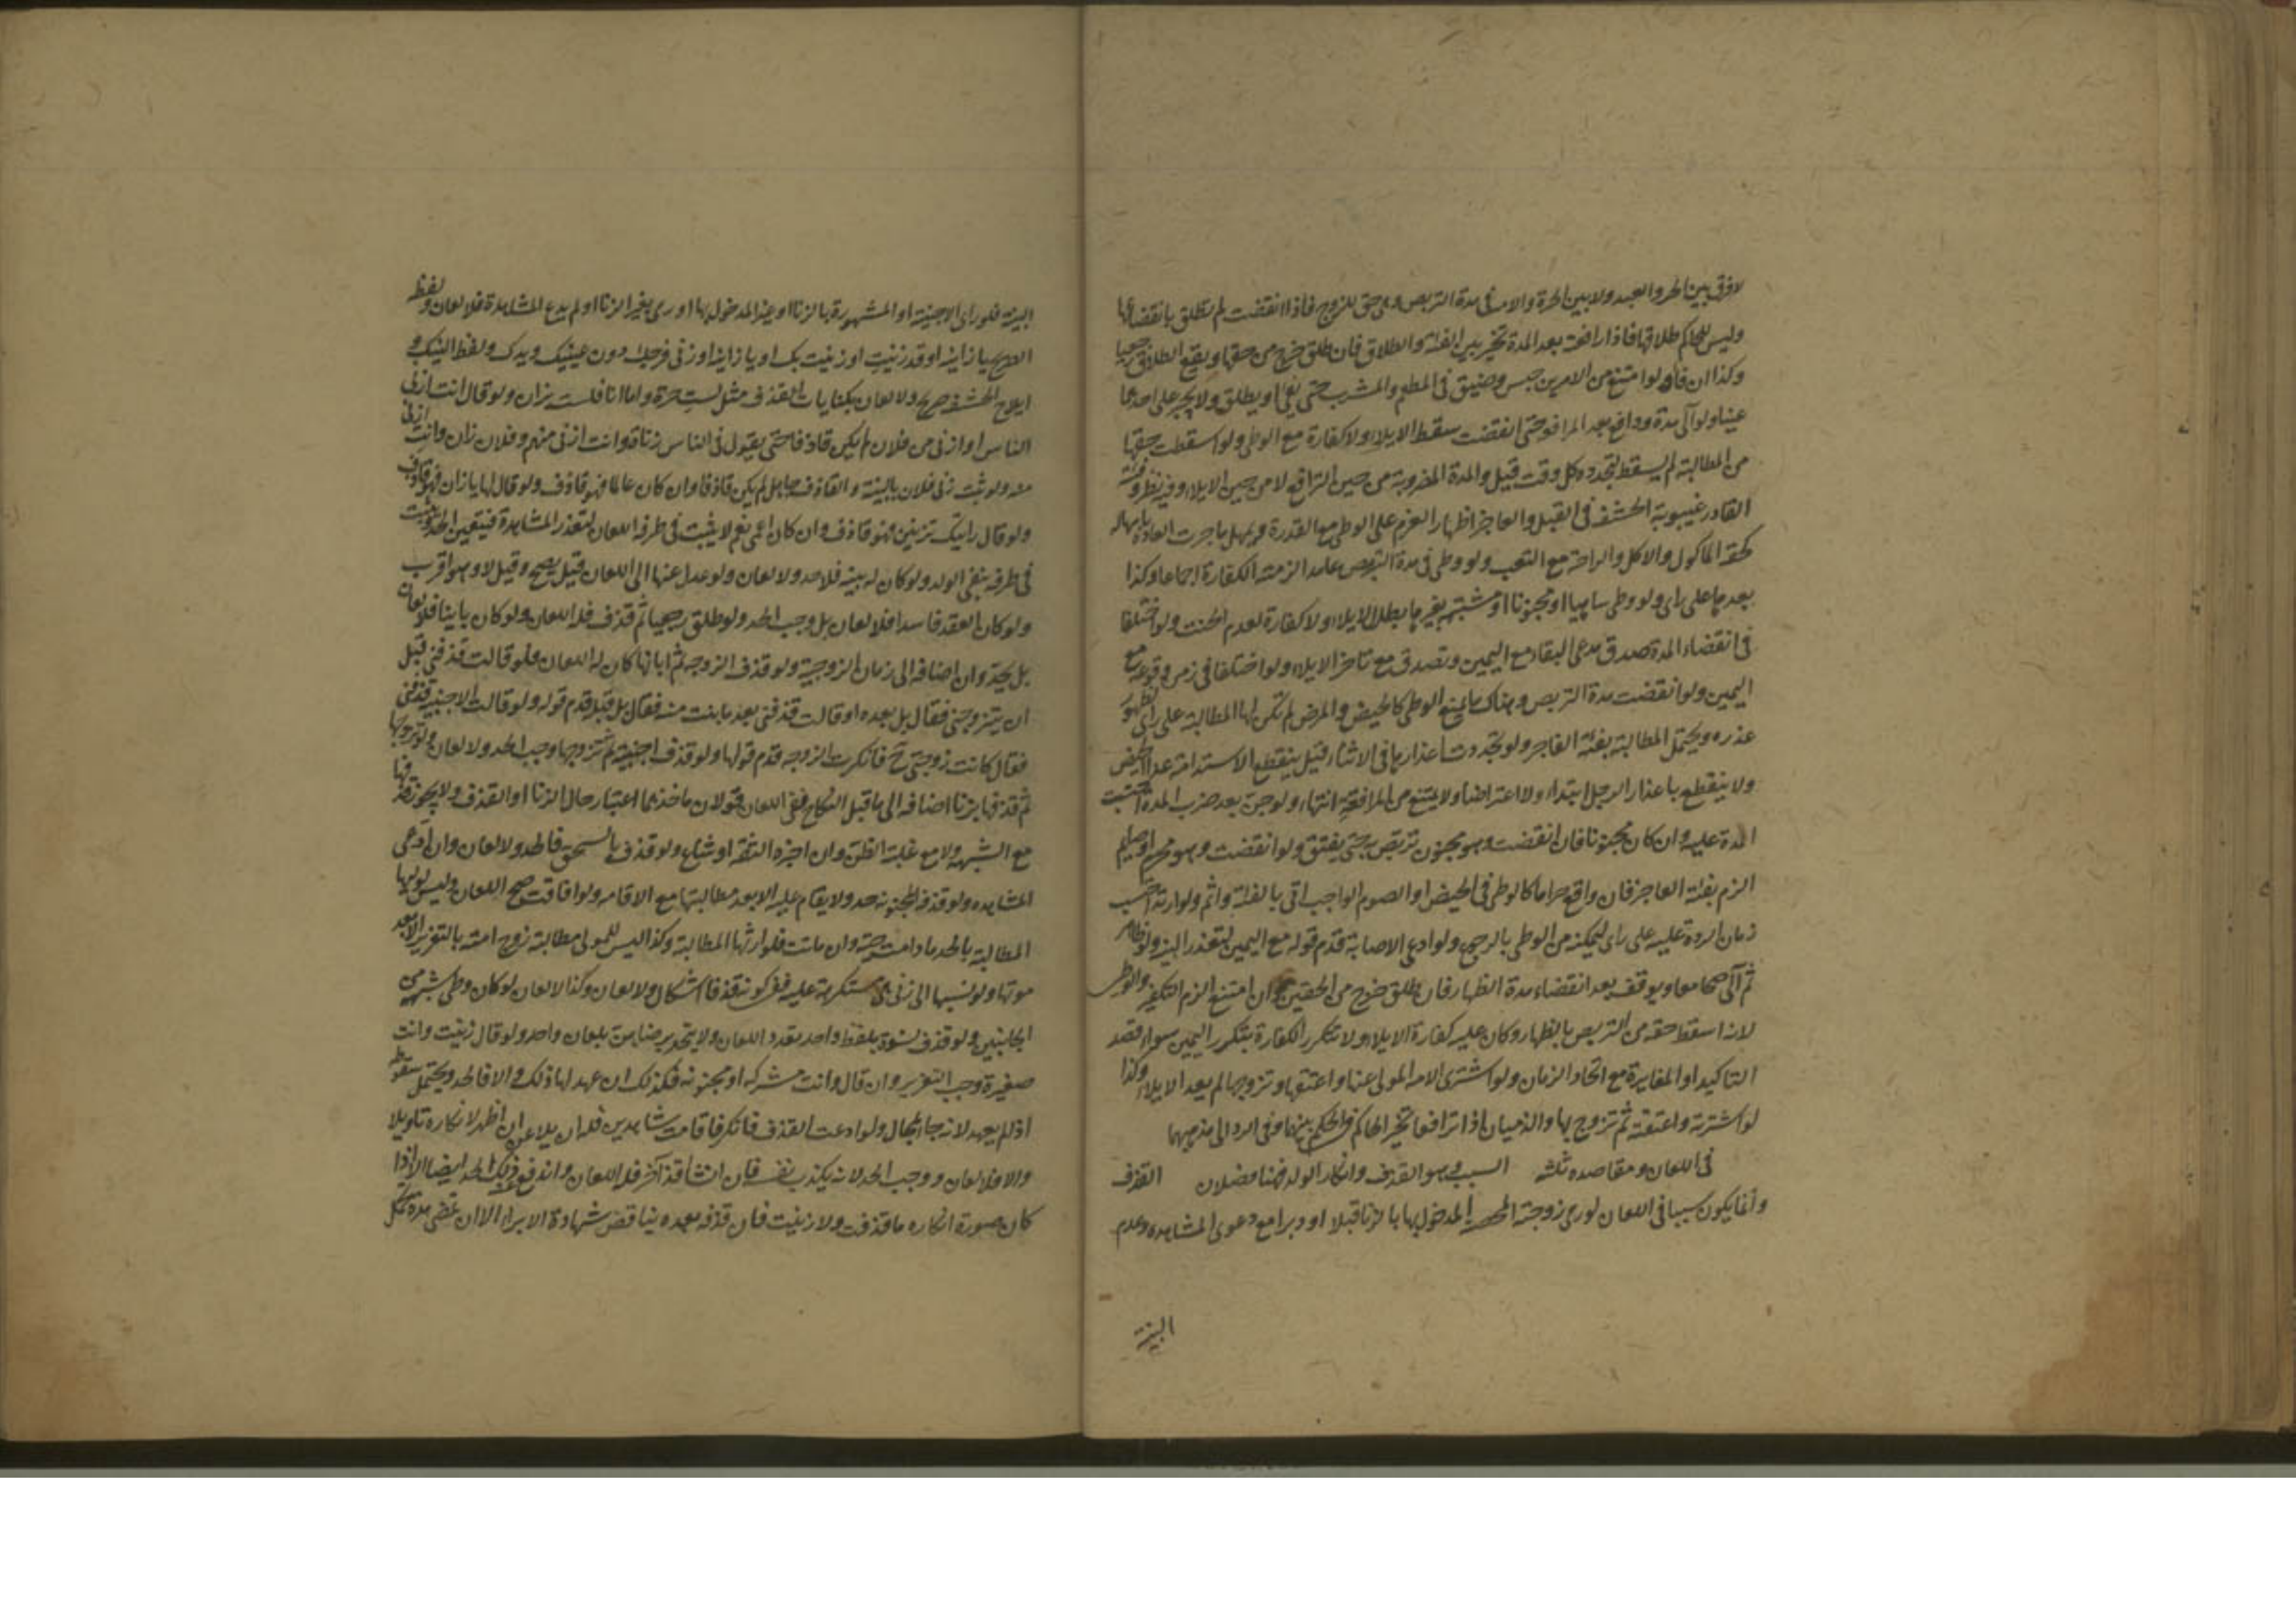 لا فرق بين الحر والعبد ولا بين الحرة والامة في مدة التربص وهي حق للزوج فاذا انقضت لم تطلق بانقضائها
وليس للحاكم طلاقها فاذا رافعته بعد المدة تخير بين الفئة والطلاق فان طلق خرج من حقها ويقع الطلاق رجعيا
وكذا ان فاء ولو امتنع من الامرين حبس وضيق في المطعم والمشرب حتى يفئ او يطلق ولا يجبر على احدهما
عينا ولو آلى مدة ودافع بعد المرافعة حتى انقضت سقط الايلاء ولا كفارة مع الوطي ولو اسقطت حقها
من المطالبة لم يسقط لتجدده كل وقت قيل والمدة المضروبة من حين الترافع لا من حين الايلاء وفيه نظر وفئة
القادر غيبوبة الحشفة في القبل والعاجز اظهار العزم على الوطي مع القدرة ويمهل ما جرت العادة بامهاله
كخفة الماكول والاكل والراحة مع التعب ولو وطي في مدة التربص عامدا لزمته الكفارة اجماعا وكذا
بعدها على راى ولو وطى ساهيا او مجنونا او مشتبهة بغيرها بطل الايلاء ولا كفارة لعدم الحنث ولو اختلفا
في انقضاء المدة صدق مدعى البقاء مع اليمين وتصدق مع تاخر الايلاء ولو اختلفا في زمن وقوعه مع
اليمين ولو انقضت مدة التربص وهناك ما يمنع الوطي كالحيض والمرض لم تكن لها المطالبة على راى لظهور
عذره ويحتمل المطالبة بفئة العاجز ولو تجددت اعذارها في الاثناء قيل ينقطع الاستدامة عدا الحيض
ولا ينقطع باعذار الرجل ابتداء ولا اعتراضا ولا يمتنع من المرافعة انتهاء ولو جن بعد ضرب المدة احتسبت
المدة عليه وان كان مجنونا فان انقضت وهو مجنون تربص به حتى يفيق ولو انقضت وهو محرم او صايم
الزم بفئة العاجز فان واقع حراما كالوطي في الحيض او الصوم الواجب اتى بالفئة واثم ولو ارتد احتسب
زمان الردة عليه على راى لتمكنه من الوطي بالرجوع ولو ادعى الاصابة قدم قوله مع اليمين لتعذر البينة ولو ظاهر
ثم آلى صحا معا ويوقف بعد انقضاء مدة الظهار فان طلق خرج من الحقين وان امتنع الزم التكفير والوطي
لانه اسقط حقه من التربص بالظهار وكان عليه كفارة الايلاء ولا تتكرر الكفارة بتكرر اليمين سواء قصد
التاكيد او المغايرة مع اتحاد الزمان ولو اشترى الامة المولى عنها واعتقها وتزوجها لم يعد الايلاء وكذا
لو اشترته واعتقته ثم تزوج بها والذميان اذا ترافعا تخير الحاكم في الحكم بينهما وفي الرد الى مذهبهما
في اللعان ومقاصده ثلثة السبب وهو القذف وانكار الولد فهنا فصلان القذف
وانما يكون سببا في اللعان لو رمى زوجته المحصنة المدخول بها بالزنا قبلا او دبرا مع دعوى المشاهدة وعدم
البينة
البينة فلو رمى الاجنبية او المشهورة بالزنا او غير المدخول بها او رمى بغير الزنا او لم يدع المشاهدة فلا لعان ولفظ
الصريح يا زانية او قد زنيت او زنيت بك او يا زانية او زنى فرجك دون عينيك ويدك ولفظ النيك و
ايلاج الحشفة صريح ولا لعان بكنايات القذف مثل لست حرة واما انا فلست بزان ولو قال انت ازنى
الناس او ازنى من فلان لم يكن قاذفا حتى يقول في الناس زناة وانت ازنى منهم وفلان زان وانت ازنى
منه ولو ثبت زنى فلان بالبينة والقاذف جاهل لم يكن قاذفا وان كان عالما فهو قاذف ولو قال لها يا زان فهو قاذف
ولو قال رايتك تزنين فهو قاذف وان كان اعمى نعم لا يثبت في طرفه اللعان لتعذر المشاهدة فيتعين الحد ويثبت
في طرفه بنفى الولد ولو كان له بينة فلا حد ولا لعان ولو عدل عنها الى اللعان قيل يصح وقيل لا وهو اقرب
ولو كان العقد فاسدا فلا لعان بل وجب الحد ولو طلق رجعيا ثم قذف فله اللعان ولو كان باينا فلا لعان
بل يحد وان اضافه الى زمان الزوجية ولو قذف الزوجة ثم ابانها كان له اللعان ولو قالت قذفنى قبل
ان يتزوجنى فقال بل بعده او قالت قذفنى بعد ما بنت منه فقال بل قبله قدم قوله ولو قالت الاجنبية قذفنى
فقال كانت زوجتى ح فانكرت الزوجة قدم قولها ولو قذف اجنبية ثم تزوجها وجب الحد ولا لعان ولو تزوجها
ثم قذفها بزنا اضافه الى ما قبل النكاح ففى اللعان قولان ماخذهما اعتبار حال الزنا او القذف ولا يجوز قذفها
مع الشبهة ولا مع غلبة الظن وان اخبره الثقة او شاع ولو قذف بالسحق فالحد ولا لعان وان ادعى
المشاهدة ولو قذف المجنونة حد ولا يقام عليه الا بعد مطالبتها مع الافاقة ولو افاقت صح اللعان وليس لوليها
المطالبة بالحد ما دامت حية وان ماتت فلوارثها المطالبة وكذا ليس للمولى مطالبة زوج امته بالتعزير الا بعد
موتها ولو نسبها الى زنى هي مستكرهة عليه ففى كونه قذفا اشكال ولا لعان وكذا لا لعان لو كان وطى شبهة من
الجانبين ولو قذف نسوة بلفظ واحد تعدد اللعان ولا يتحد برضاهن بلعان واحد ولو قال زنيت وانت
صغيرة وجب التعزير وان قال وانت مشركة او مجنونة فكذلك ان عهد لها ذلك والا فالحد ويحتمل سقوطه
اذا لم يعهد لانه جاء بمحال ولو ادعت القذف فانكر فاقامت شاهدين فله ان يلاعن ان اظهر لانكاره تاويلا
والا فلا لعان ووجب الحد لانه يكذب نفسه فان انشا قذفا آخر فله اللعان واندفع ذلك الحد ايضا الا اذا
كان صورة انكاره ما قذفت ولا زنيت فان قذفه بعده يناقض شهادة الابراء الا ان تمضى مدة يمكن